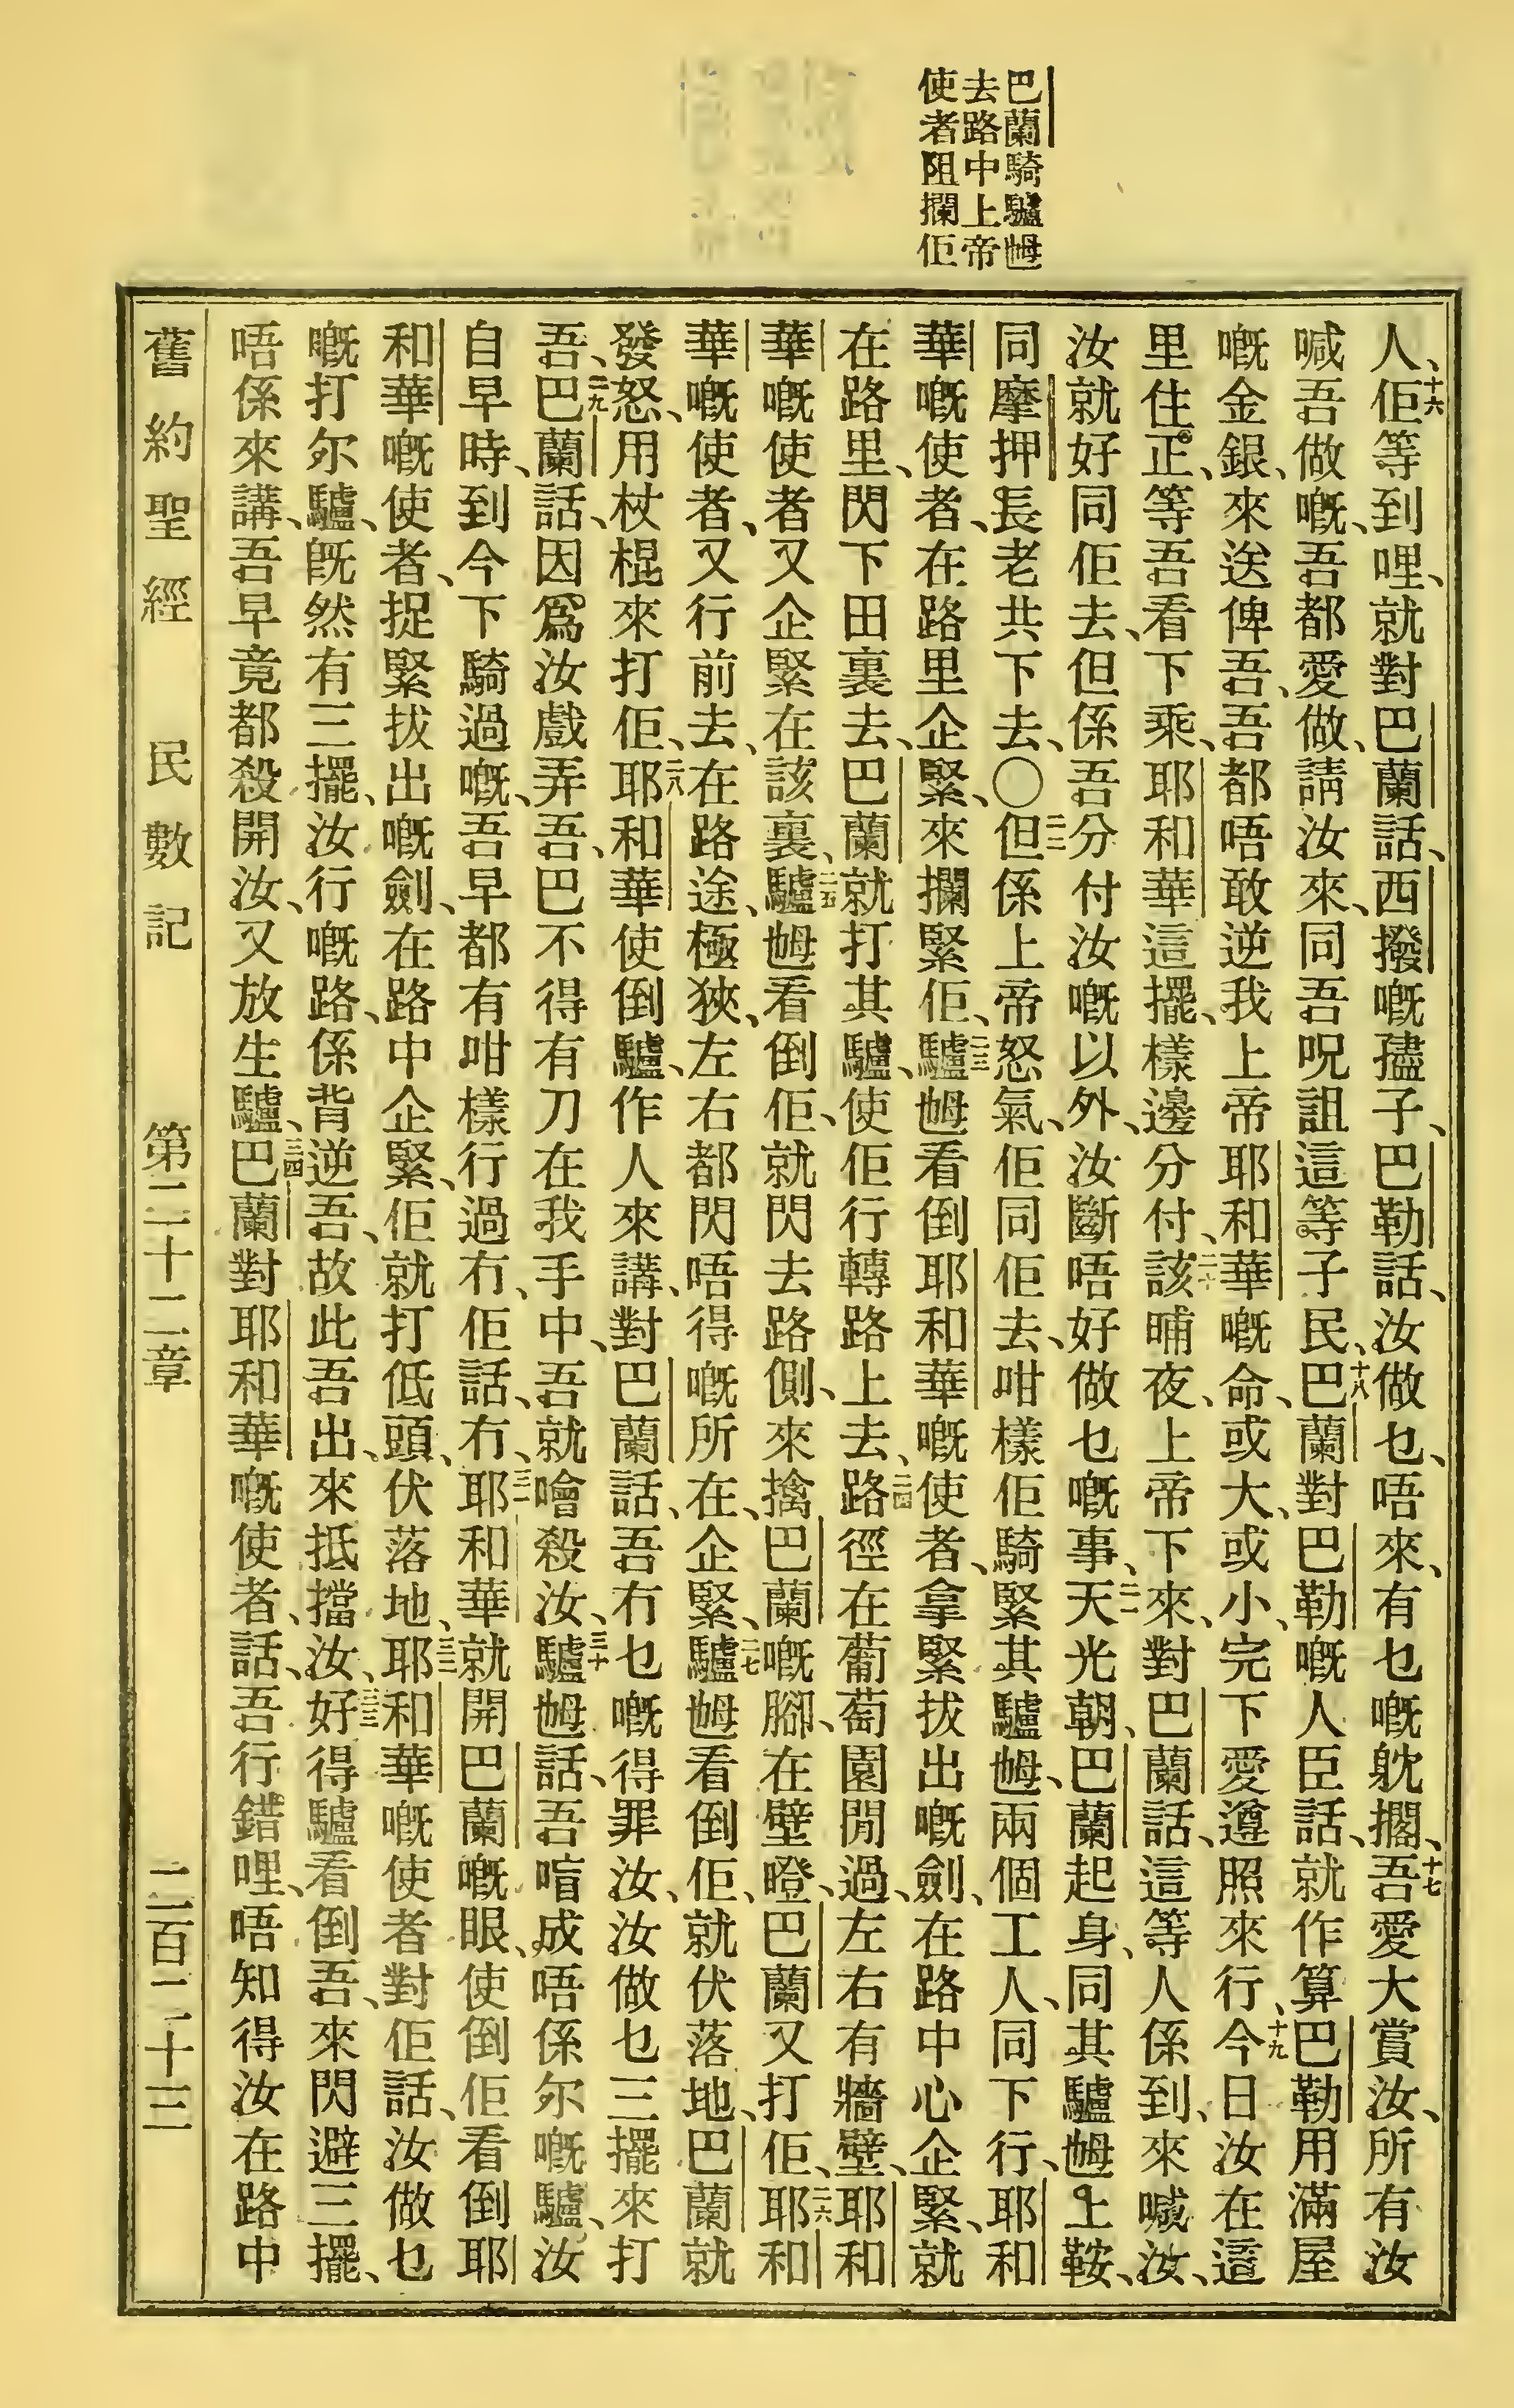 巴蘭騎驢𡜵
去路中上帝
使者阻攔佢
人、十六佢等到哩、就對巴蘭話、西撥嘅孻子、巴勒話、汝做乜、唔來、有乜嘅躭擱、十七吾愛大賞汝、所有汝
喊吾做嘅、吾都愛做、請汝來、同吾呪詛這等子民、十八巴蘭對巴勒嘅人臣話、就作算巴勒用滿屋
嘅金銀、來送俾吾、吾都唔敢逆我上帝耶和華嘅命、或大、或小、完下愛遵照來行、十九今日汝在這
里住正、等吾看下乘、耶和華這擺、樣邊分付、二十該晡夜、上帝下來、對巴蘭話、這等人係到、來喊汝、
汝就好同佢去、但係吾分付汝嘅以外、汝斷唔好做乜嘅事、二一天光朝、巴蘭起身、同其驢𡜵上鞍、
同摩押長老共下去、〇二二但係上帝怒氣、佢同佢去、咁樣佢騎緊其驢𡜵、兩個工人、同下行、耶和
華嘅使者、在路里企緊、來攔緊佢、二三驢𡜵看倒耶和華嘅使者、拿緊拔出嘅劍、在路中心企緊、就
在路里、閃下田裏去、巴蘭就打其驢、使佢行轉路上去、二四路徑在葡萄園閒過、左右有牆壁、耶和
華嘅使者又企緊在該裏、二五驢𡜵看倒佢、就閃去路側、來擒巴蘭嘅腳、在壁磴、巴蘭又打佢、二六耶和
華嘅使者、又行前去、在路途極狹、左右都閃唔得嘅所在、企緊、二七驢𡜵看倒佢、就伏落地、巴蘭就
發怒、用杖棍來打佢、二八耶和華使倒驢、作人來講、對巴蘭話、吾冇乜嘅得罪汝、汝做乜三擺來打
吾、二九巴蘭話、因爲汝戲弄吾、吾巴不得有刀在我手中、吾就噲殺汝、三十驢𡜵話、吾喧成唔係尔嘅驢、汝
自早時、到今下騎過嘅、吾早都有咁樣行過冇、佢話、冇、三一耶和華就開巴蘭嘅眼、使倒佢看倒耶
和華嘅使者、捉緊拔出嘅劍、在路中企緊、佢就打低頭、伏落地、三二耶和華嘅使者對佢話、汝做乜
嘅打尔驢、旣然有三擺、汝行嘅路、係背逆吾、故此吾出、來抵擋汝、三三好得驢看倒吾、來閃避三擺、
唔係來講、吾早竟都殺開汝、又放生驢、三四巴蘭對耶和華嘅使者、話、吾行錯哩、唔知得汝在路中
舊約聖經　民數記　第二十二章　二百二十三